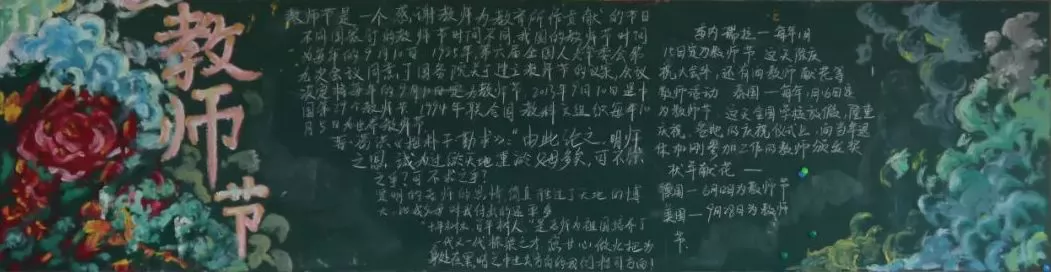 教师节
教师节是一个感谢教师为教育所作贡献的节日
不同国家订的教师节时间不同，我国的教师节时间
为每年的9月10日。1985年，第六届全国人大常委会第
九次会议同意了国务院关于建立教师节的议案，会议
决定将每年的9月10日定为教师节，2013年9月10日是中
国第29个教师节，1994年联合国教科文组织每年10
月5日为世界教师节
晋·葛洪《抱朴子勤求》："由此论之，明师
之恩，诚为过于天地，重于父母多矣，可不崇
之乎？可不求之乎？
贤明的老师的恩情，简直胜过了天地的博
大，比
十年树木，百年树人，是老师为祖国培养了
一代又一代栋梁之才，甘心做火把为
身处在黑明之中迷失方向的我们指引方向！
委内瑞拉——每年1月
15日定为教师节，这天除庆
祝大会外，还有向教师献花等
教师活动 泰国——每年1月16日定
为教师节，这天全国学校放假，隆重
庆祝，各地的庆祝仪式上，向当年退
休加刚参加工作的教师颁发奖
状年献花——
德国——6月12日为教师节
美国——9月28日为教师
节